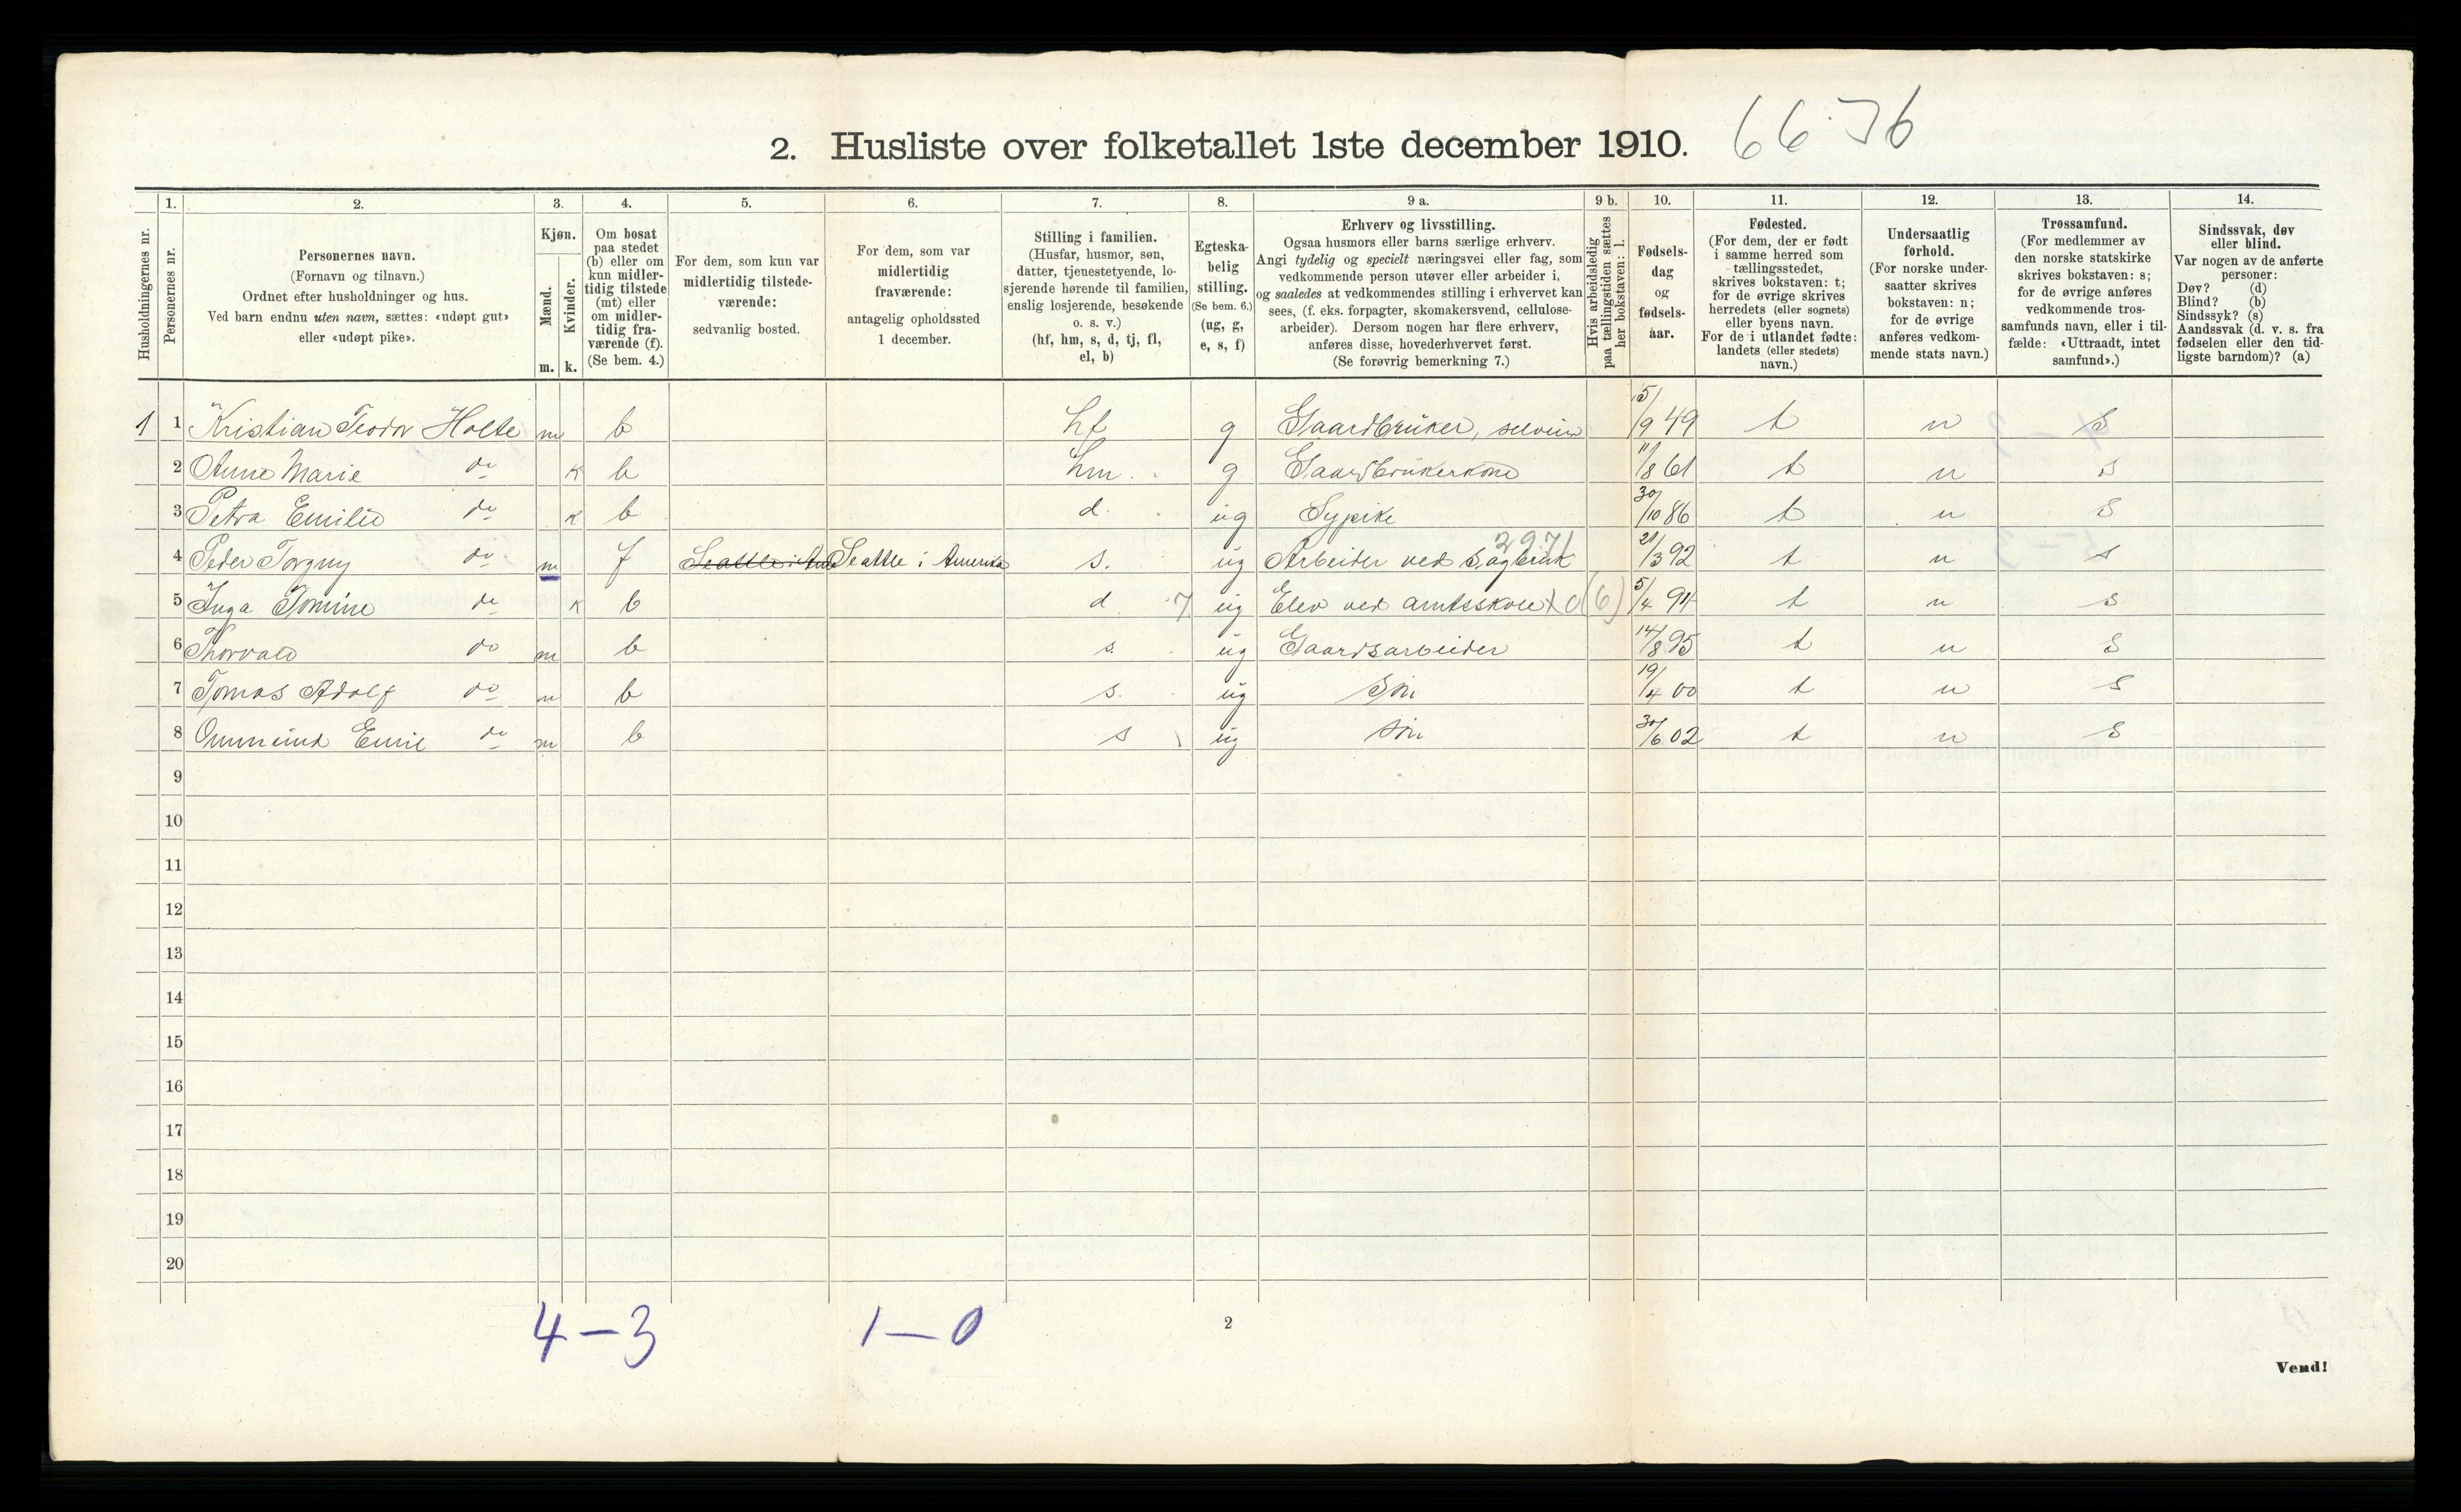 2. Husliste over folketallet 1ste december 1910. 66 76
1. 2. 3. 4. 5. 6. 7. 8. 9 a. 9 b. 10. 11. 12. 13. 14.
Husholdningernes nr.
Personernes nr.
Personernes navn.
(Fornavn og tilnavn.)
Ordnet efter husholdninger og hus.
Ved barn endnu uten navn, sættes: «udøpt gut»
eller «udøpt pike».
Kjøn.
Mænd.
Kvinder.
m. k.
Om bosat
paa stedet
(b) eller om
kun midler-
tidig tilstede
(mt) eller
om midler-
tidig fra-
værende (f).
(Se bem. 4.)
For dem, som kun var
midlertidig tilstede-
værende:
sedvanlig bosted.
For dem, som var
midlertidig
fraværende:
antagelig opholdssted
1 december.
Stilling i familien.
(Husfar, husmor, søn,
datter, tjenestetyende, lo-
sjerende hørende til familien,
enslig losjerende, besøkende
o. s. v.)
(hf, hm, s, d, tj, fl,
el, b)
Egteska-
belig
stilling.
(Se bem. 6.)
(ug, g,
e, s, f)
Erhverv og livsstilling.
Ogsaa husmors eller barns særlige erhverv.
Angi tydelig og specielt næringsvei eller fag, som
vedkommende person utøver eller arbeider i,
og saaledes at vedkommendes stilling i erhvervet kan
sees, (f. eks. forpagter, skomakersvend, cellulose-
arbeider). Dersom nogen har flere erhverv,
anføres disse, hovederhvervet først.
(Se forøvrig bemerkning 7.)
Hvis arbeidsledig
paa tællingstiden sættes
her bokstaven: l.
Fødsels-
dag
og
fødsels-
aar.
Fødested.
(For dem, der er født
i samme herred som
tællingsstedet,
skrives bokstaven: t;
for de øvrige skrives
herredets (eller sognets)
eller byens navn.
For de i utlandet fødte:
landets (eller stedets)
navn.)
Undersaatlig
forhold.
(For norske under-
saatter skrives
bokstaven: n;
for de øvrige
anføres vedkom-
mende stats navn.)
Trossamfund.
(For medlemmer av
den norske statskirke
skrives bokstaven: s;
for de øvrige anføres
vedkommende tros-
samfunds navn, eller i til-
fælde: «Uttraadt, intet
samfund».)
Sindssvak, døv
eller blind.
Var nogen av de anførte
personer:
Døv? (d)
Blind? (b)
Sindssyk? (s)
Aandssvak (d. v. s. fra
fødselen eller den tid-
ligste barndom)? (a)
1 1 Kristian Teodor Holte m b hf g Gaardbruker, selveier 5/9 49 t n s
2 Anne Marie do k b hm g Gaardbrukerkone 11/8 61 t n s
3 Petra Emilie do k b d ug Sypike 30/10 86 t n s
2971
4 Peder Torguy do m f Seattle i Seattle i Amerika s. ug Arbeider ved Sagbruk 21/3 92 t n s
5 Inga Tomine do k b d 7 ug Elev ved amtsskole (6) 5/4 94 t n s
6 Thorvald do m b s. ug Gaardsarbeider 14/8 95 t n s
7 Tomas Adolf do m b s. ug Søn 19/4 00 t n s
8 Ommund Emil do m b s ug Søn 30/6 02 t n s
9
10
11
12
13
14
15
16
17
18
19
20
4 – 3 1 – 0
2
Vend!